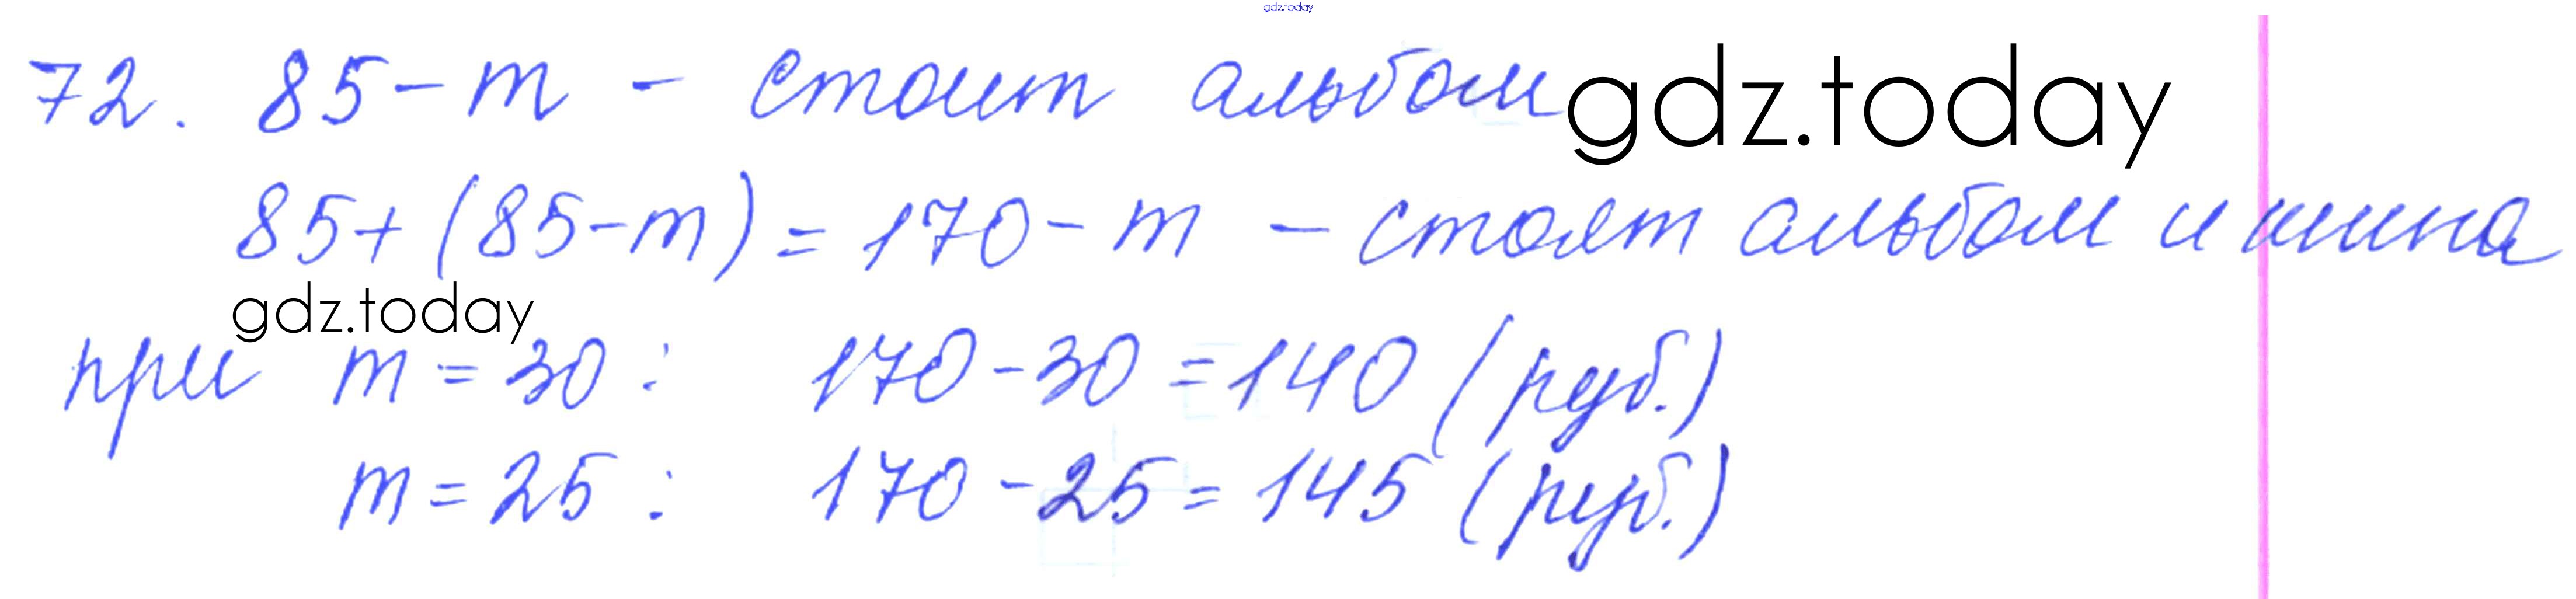 gdz.today
72. 85 - m - стоит альбом gdz.today
85 + (85 - m) = 170 - m - стоят альбом и
gdz.today
при m = 30 : 170 - 30 = 140 (руб.)
m = 25 : 170 - 25 = 145 (руб.)